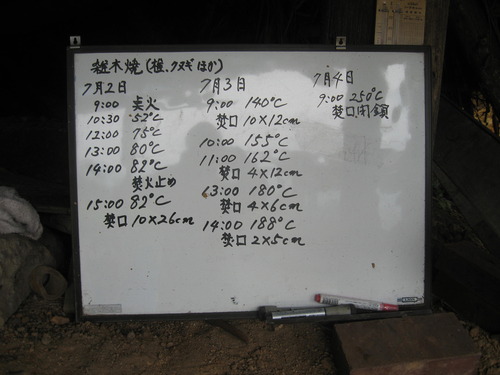 雑木焼(楢、クヌギほか)
7月2日
9:00 点火
10:30 52℃
12:00 75℃
13:00 80℃
14:00 82℃
焚火止め
15:00 82℃
焚口 10×26cm
7月3日
9:00 140℃
焚口 10×12cm
10:00 155℃
11:00 162℃
焚口 4×12cm
13:00 180℃
焚口 4×6cm
14:00 188℃
焚口 2×5cm
7月4日
9:00 250℃
焚口閉鎖